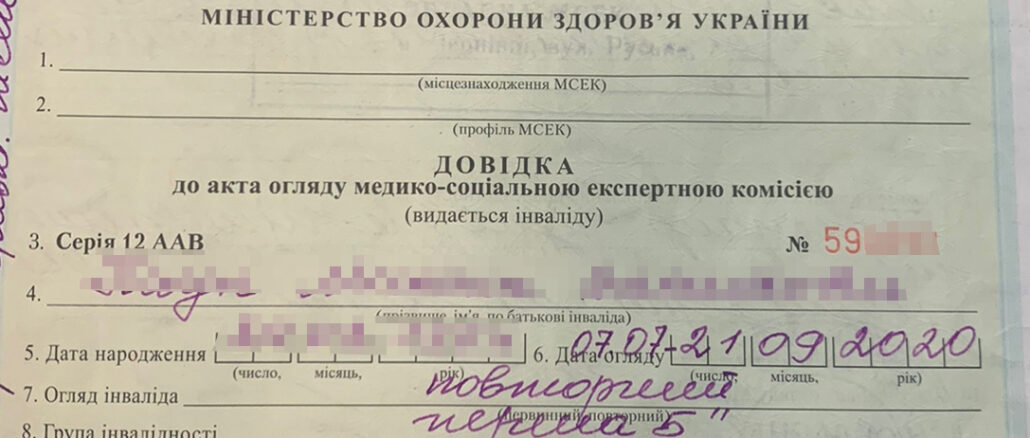 МІНІСТЕРСТВО ОХОРОНИ ЗДОРОВ’Я УКРАЇНИ
1.
(місцезнаходження МСЕК)
2.
(профіль МСЕК)
ДОВІДКА
до акта огляду медико-соціальною експертною комісією
(видається інваліду)
3. Серія 12 ААВ № 59
4.
(прізвище, ім’я, по батькові інваліда)
5. Дата народження 6. Дата огляду 07.07-21 09 2020
(число, місяць, рік) (число, місяць, рік)
7. Огляд інваліда повторний
(первинний, повторний)
8. Група інвалідності перша Б"